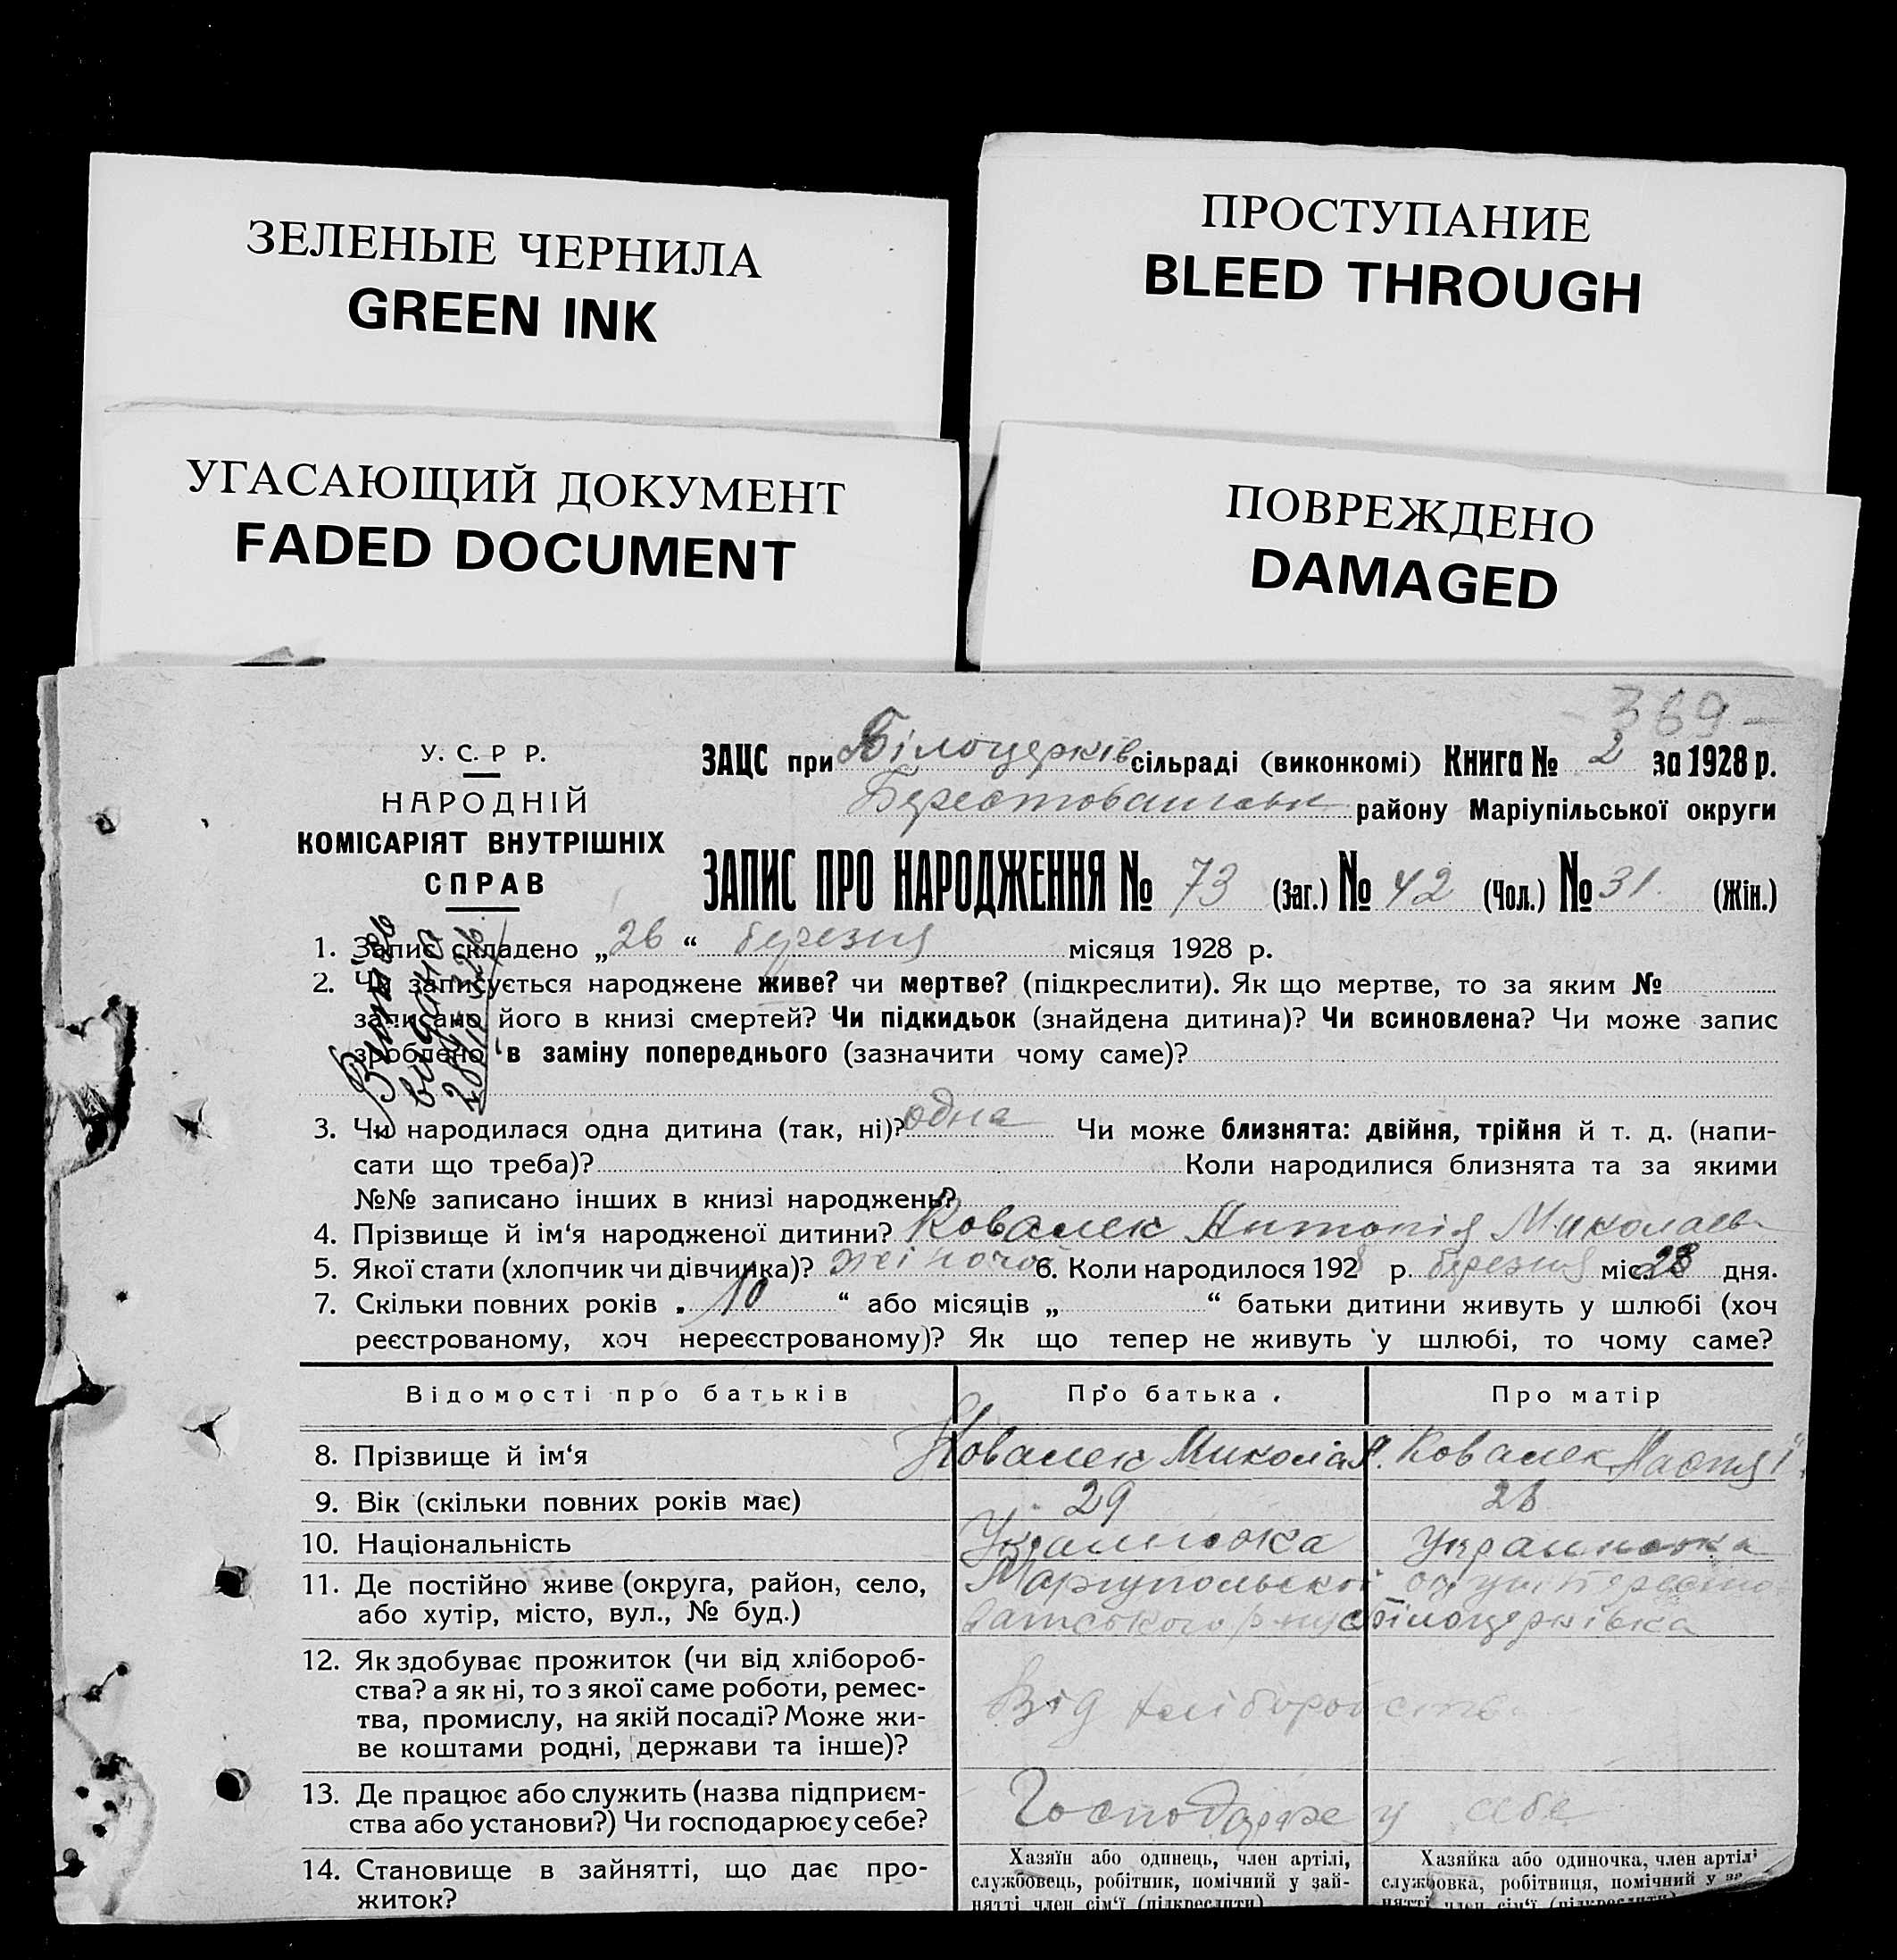 ЗЕЛЕНЫЕ ЧЕРНИЛА
GREEN INK
ПРОСТУПАНИЕ
BLEED THROUGH
УГАСАЮЩИЙ ДОКУМЕНТ
FADED DOCUMENT
ПОВРЕЖДЕНО
DAMAGED
-369-
У. С. Р Р.
НАРОДНІЙ
КОМІСАРІЯТ ВНУТРІШНІХ
СПРАВ
ЗАЦС при Білоцерків сільраді (виконкомі) Книга № 2 за 1928 р.
району Маріупільської округи
ЗАПИС ПРО НАРОДЖЕННЯ № 73 (Заг.) № 42 (Чол.) № 31. (Жін.)
Витяг
видано
1. Запис складено „26“ березня місяця 1928 р.
2. Чи записується народжене живе? чи мертве? (підкреслити). Як що мертве, то за яким №
записано його в книзі смертей? Чи підкидьок (знайдена дитина)? Чи всиновлена? Чи може запис
зроблено в заміну попереднього (зазначити чому саме)?
3. Чи народилася одна дитина (так, ні)? одна Чи може близнята: двійня, трійня й т. д. (напи-
сати що треба)? Коли народилися близнята та за якими
№№ записано інших в книзі народжень?
4. Прізвище й ім‘я народженої дитини? Ковалек Антонія Миколаев
5. Якої стати (хлопчик чи дівчинка)? жіночої 6. Коли народилося 1928 р. березня міс. 28 дня.
7. Скільки повних років „ 10 “ або місяців „ “ батьки дитини живуть у шлюбі (хоч
реєстрованому, хоч нереєстрованому)? Як що тепер не живуть у шлюбі, то чому саме?
Відомості про батьків Про батька. Про матір
8. Прізвище й ім‘я Ковалек Микола Ковалек
9. Вік (скільки повних років має) 29 28
10. Національність Українська Українська
11. Де постійно живе (округа, район, село,
або хутір, місто, вул., № буд.) Білоцерківка
12. Як здобуває прожиток (чи від хлібороб-
ства? а як ні, то з якої саме роботи, ремес-
тва, промислу, на якій посаді? Може жи-
ве коштами родні, держави та інше)?
Від хліборобства
13. Де працює або служить (назва підприєм-
ства або установи?) Чи господарює у себе?
Господарює у себе
14. Становище в зайнятті, що дає про-
житок?
Хазяїн або одинець, член артілі,
службовець, робітник, помічний у зай-
нятті член сім‘ї (підкреслити)
Хазяйка або одиночка, член артілі
службовка, робітниця, помічний у за
нятті член сім‘ї (підкреслити)